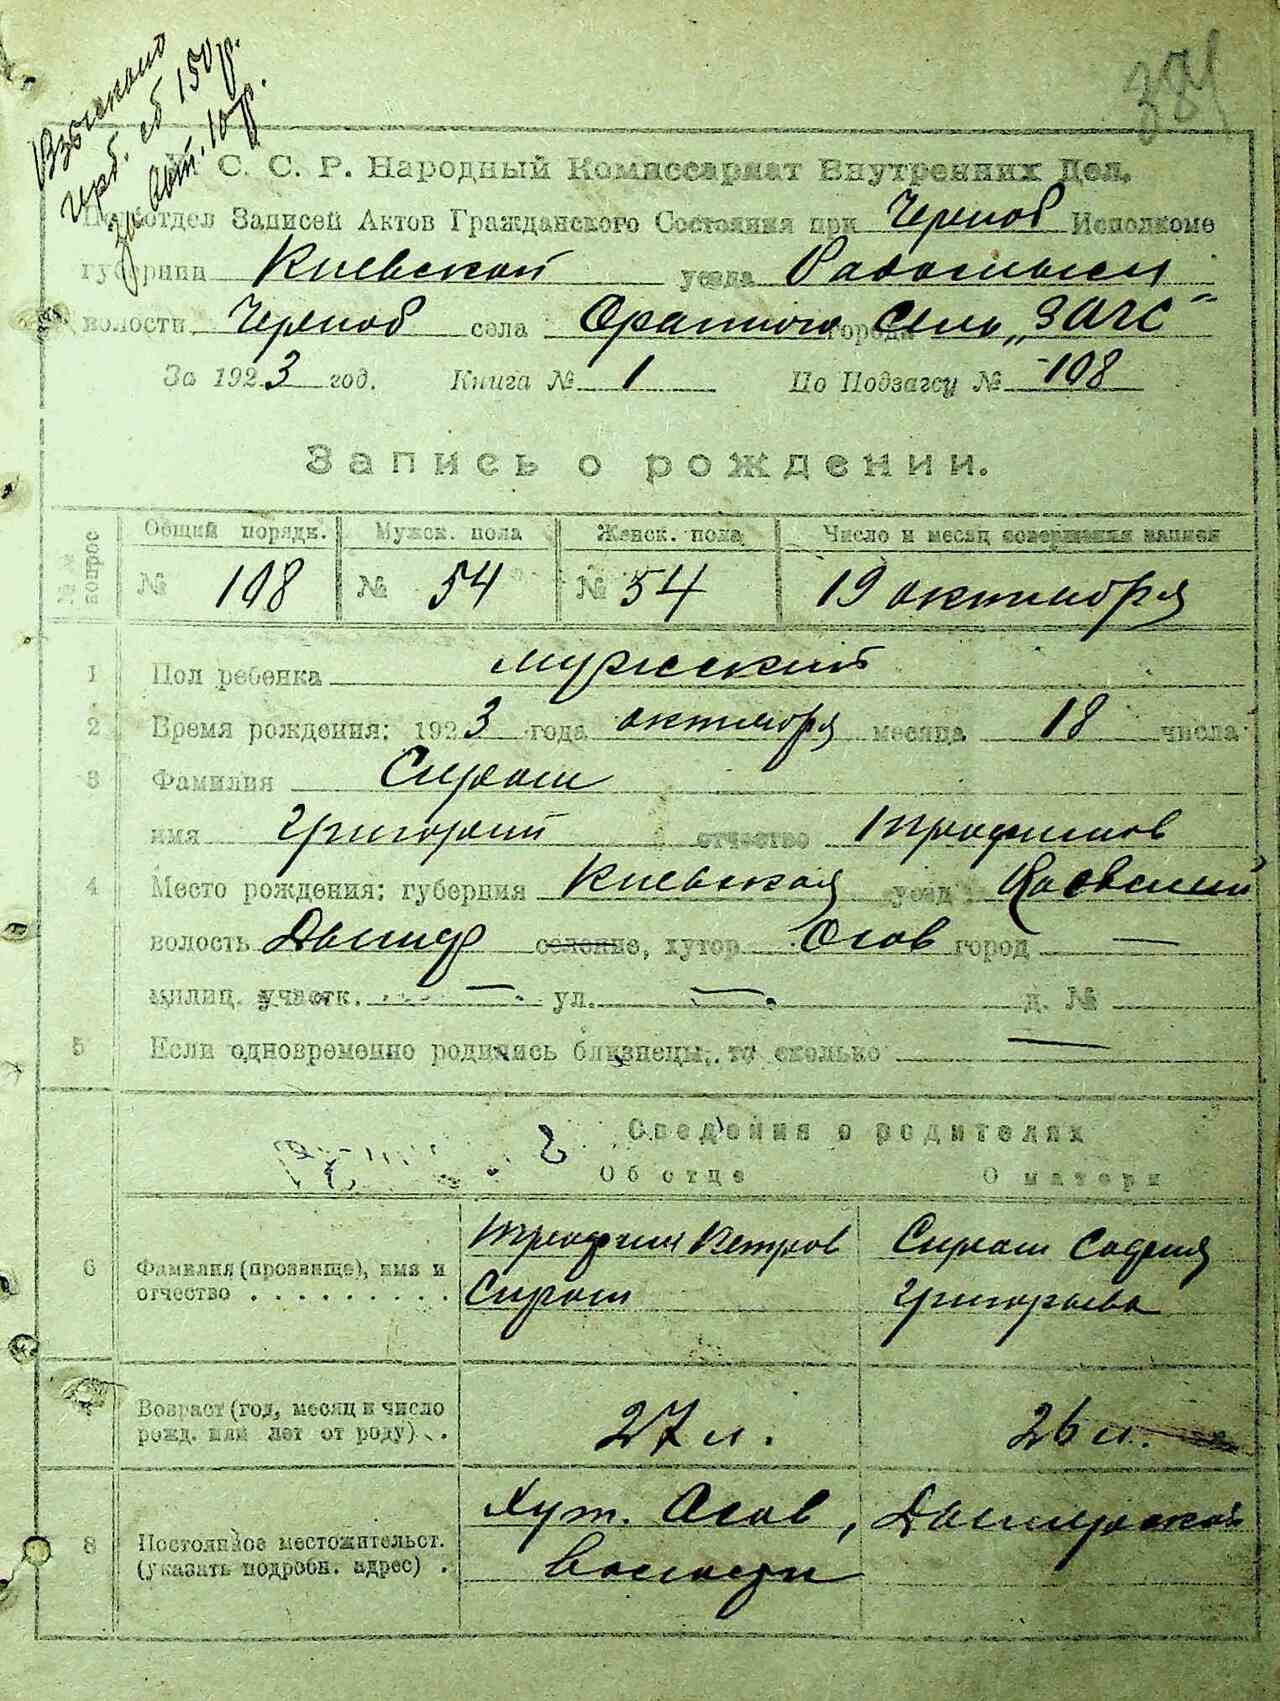 381
Взыскано
герб. сб 150 р.
за авт. 10 р.
С. С. Р. Народный Комиссариат Внутренних Дел.
Подотдел Записей Актов Гражданского Состояния при Черноб Исполкоме
губернии Киевской уезда Радомысл
волости Черноб села Оранного города Сель „ЗАГС"
За 1923 год. Книга № 1 По Подзагсу № 108
Запись о рождении.
№№ вопрос
Общий порядк. Мужск. пола Женск. пола Число и месяц совершения записи
№ 108 № 54 № 54 19 октября
1 Пол ребенка мужеский
2 Время рождения: 1923 года октября месяца 18 числа
3 Фамилия Сираш
имя Григорий отчество Трофимов
4 Место рождения: губерния Киевская уезд Киевский
волость Дымер селение, хутор Осов город —
милиц. участк. — ул. — д. №
5 Если одновременно родились близнецы, то сколько —
Сведения о родителях
Об отце О матери
6 Фамилия (прозвище), имя и отчество . . . . . . . . .
Трофим Петров
Сираш
Сираш София
Григорьева
7 Возраст (год, месяц и число рожд. или лет от роду) . .
27 л. 26 л.
8 Постоянное местожительст. (указать подробн. адрес) .
Хут. Осов, Дымерской
волости